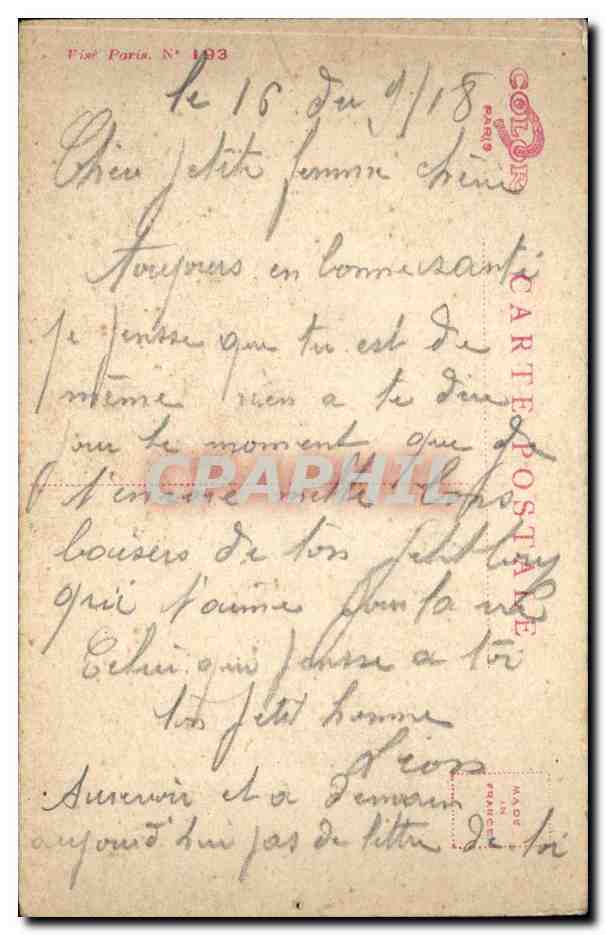 Visé Paris. N° 193
le 16 du 9/18
COLOR
PARIS
CARTE POSTALE
Chère petite femme chérie
toujours en bonne santé
je pensse que tu est de
même rien a te dire
pour le moment que de
t'envoie mille bons
baisers de ton petit
qui t'aime pour la vie
Celui qui pensse a toi
ton petit homme
Léon
Aurevoir et a demain
aujourd'hui pas de lettre de toi
MADE
IN
FRANCE
CPAPHIL